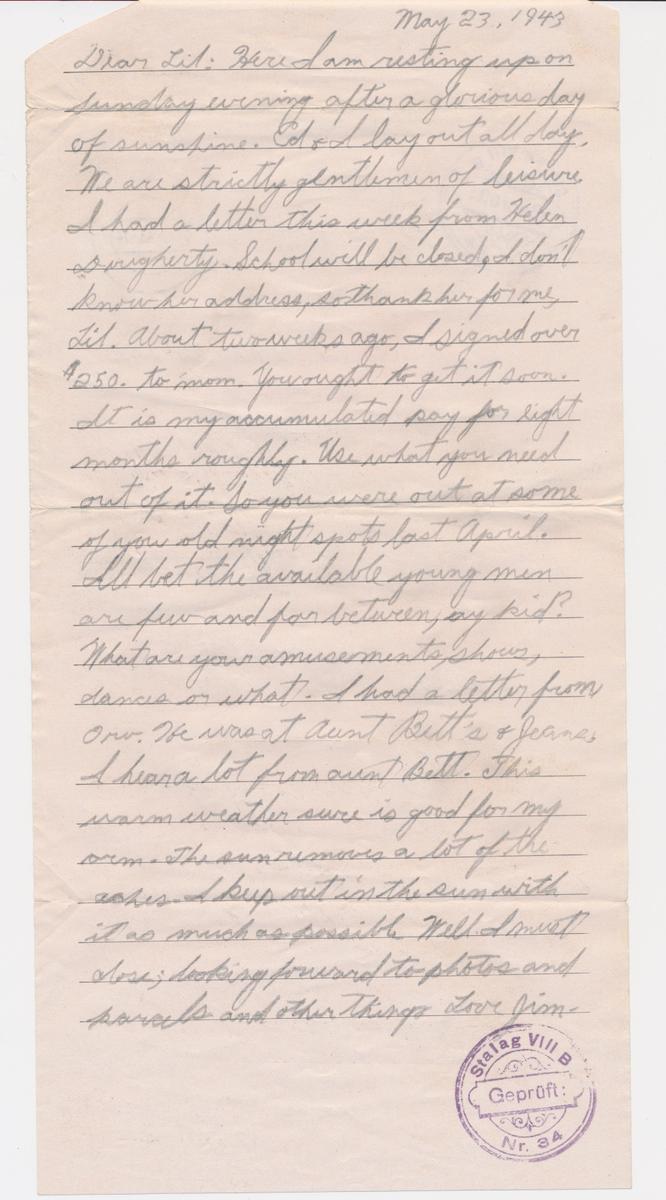 May 23, 1943
Dear Lil: Here I am resting up on
sunday evening after a glorious day
of sunshine. Ed & I lay out all day.
We are strictly gentlemen of leisure.
I had a letter this week from Helen
Dougherty. School will be closed, I don't
know her address, so thank her for me,
Lil. About two weeks ago, I signed over
$250. to mom. You ought to get it soon.
It is my accumulated pay for eight
months roughly. Use what you need
out of it. So you were out at some
of you old night spots last April.
I'll bet the available young men
are few and far between, ay kid?
What are your amusements, shows,
dances or what. I had a letter from
Orv. He was at Aunt Bett's & Jeans.
I hear a lot from aunt Bett. This
warm weather sure is good for my
arm. The sun removes a lot of the
aches. I keep out in the sun with
it as much as possible. Well I must
close; looking forward to photos and
parcels and other things Love Jim.
Stalag VIII B
Geprüft:
Nr. 34